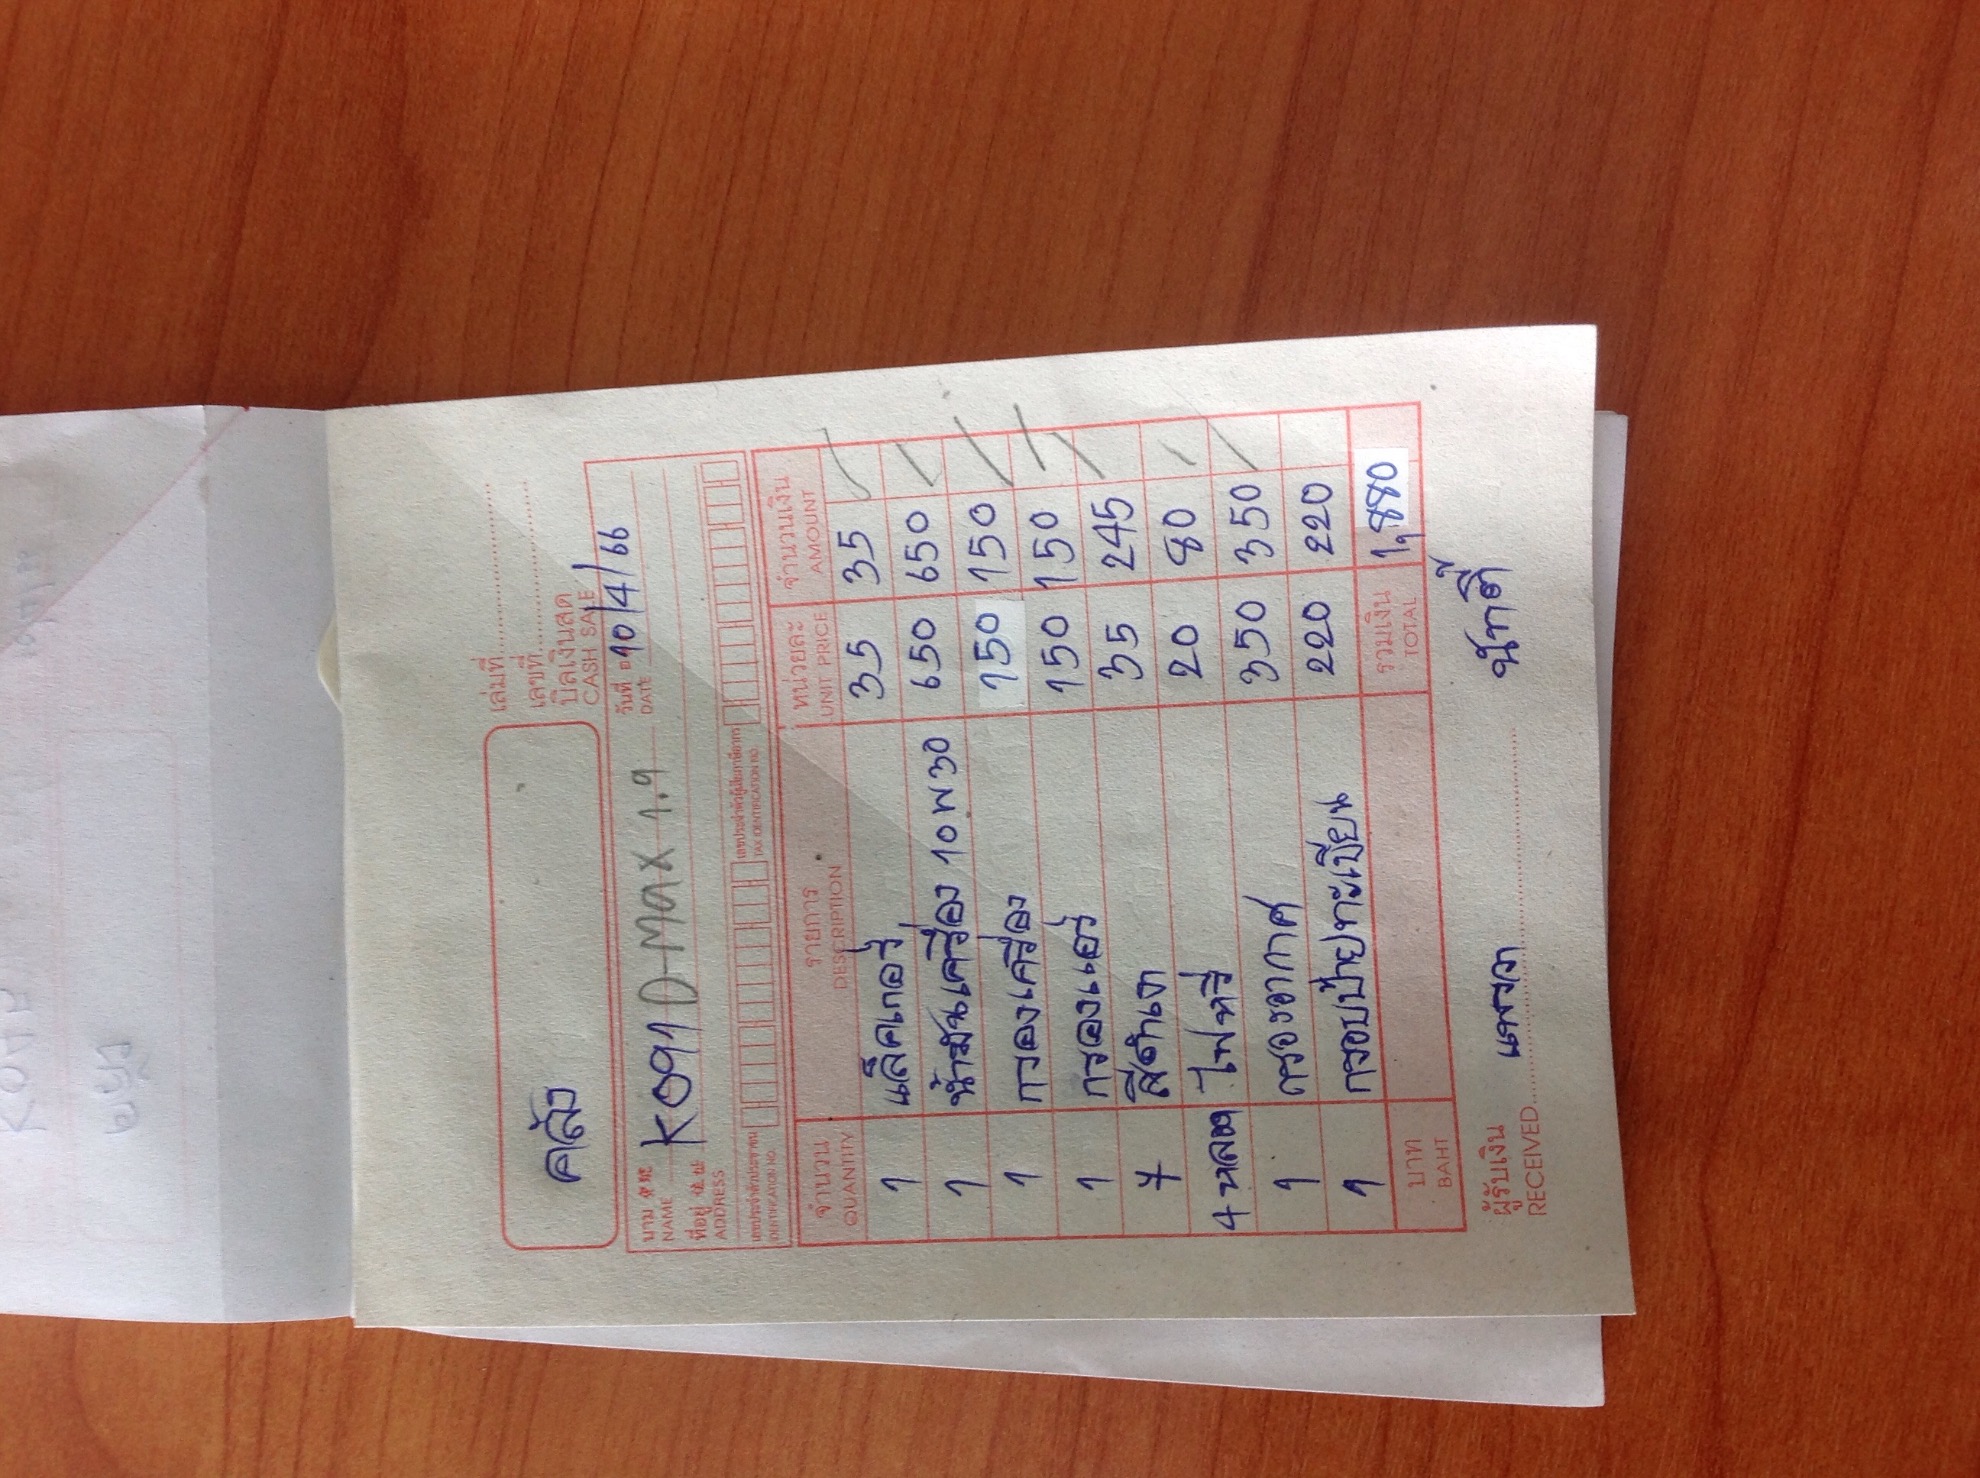 คลัง
เล่มที่
เลขที่
บิลเงินสด
CASH SALE
นาม K091 D-MAX 1.9 วันที่ 10/4/66
NAME DATE
ที่อยู่
ADDRESS
เลขประจำตัวประชาชน เลขประจำตัวผู้เสียภาษีอากร
IDENTIFICATION NO. TAX IDENTIFICATION NO.
จำนวน รายการ หน่วยละ จำนวนเงิน
QUANTITY DESCRIPTION UNIT PRICE AMOUNT
1 แล็คเกอร์ 35 35
1 น้ำมันเครื่อง 10 W 30 650 650
1 กรองเครื่อง 150 150
1 กรองแอร์ 150 150
7 สีดำเงา 35 245
4 หลอด ไฟหรี่ 20 80
1 กรองอากาศ 350 350
1 กรอบป้ายทะเบียน 220 220
บาท รวมเงิน 1,880
BAHT TOTAL
ผู้รับเงิน
RECEIVED